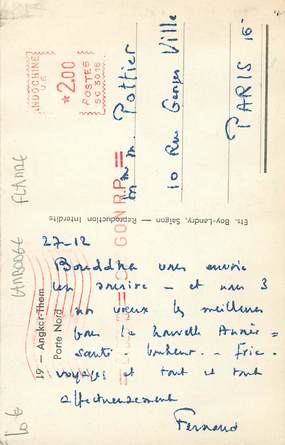 INDOCHINE
U.P.
*2.00
POSTES
SC 3016
Mme M. Pottier
10 Rue Georges Ville
PARIS 16
GON R.P.
Ets. Boy-Landry, Saigon — Reproduction Interdite
19 — Angkor-Thom
Porte Nord
27-12
Bouddha vous envoie
un sourire — et nous 3
nos voeux les meilleurs
pour la nouvelle Année =
santé - bonheur - fric -
voyages et tout et tout
affectueusement
Fernand
CAMBODGE